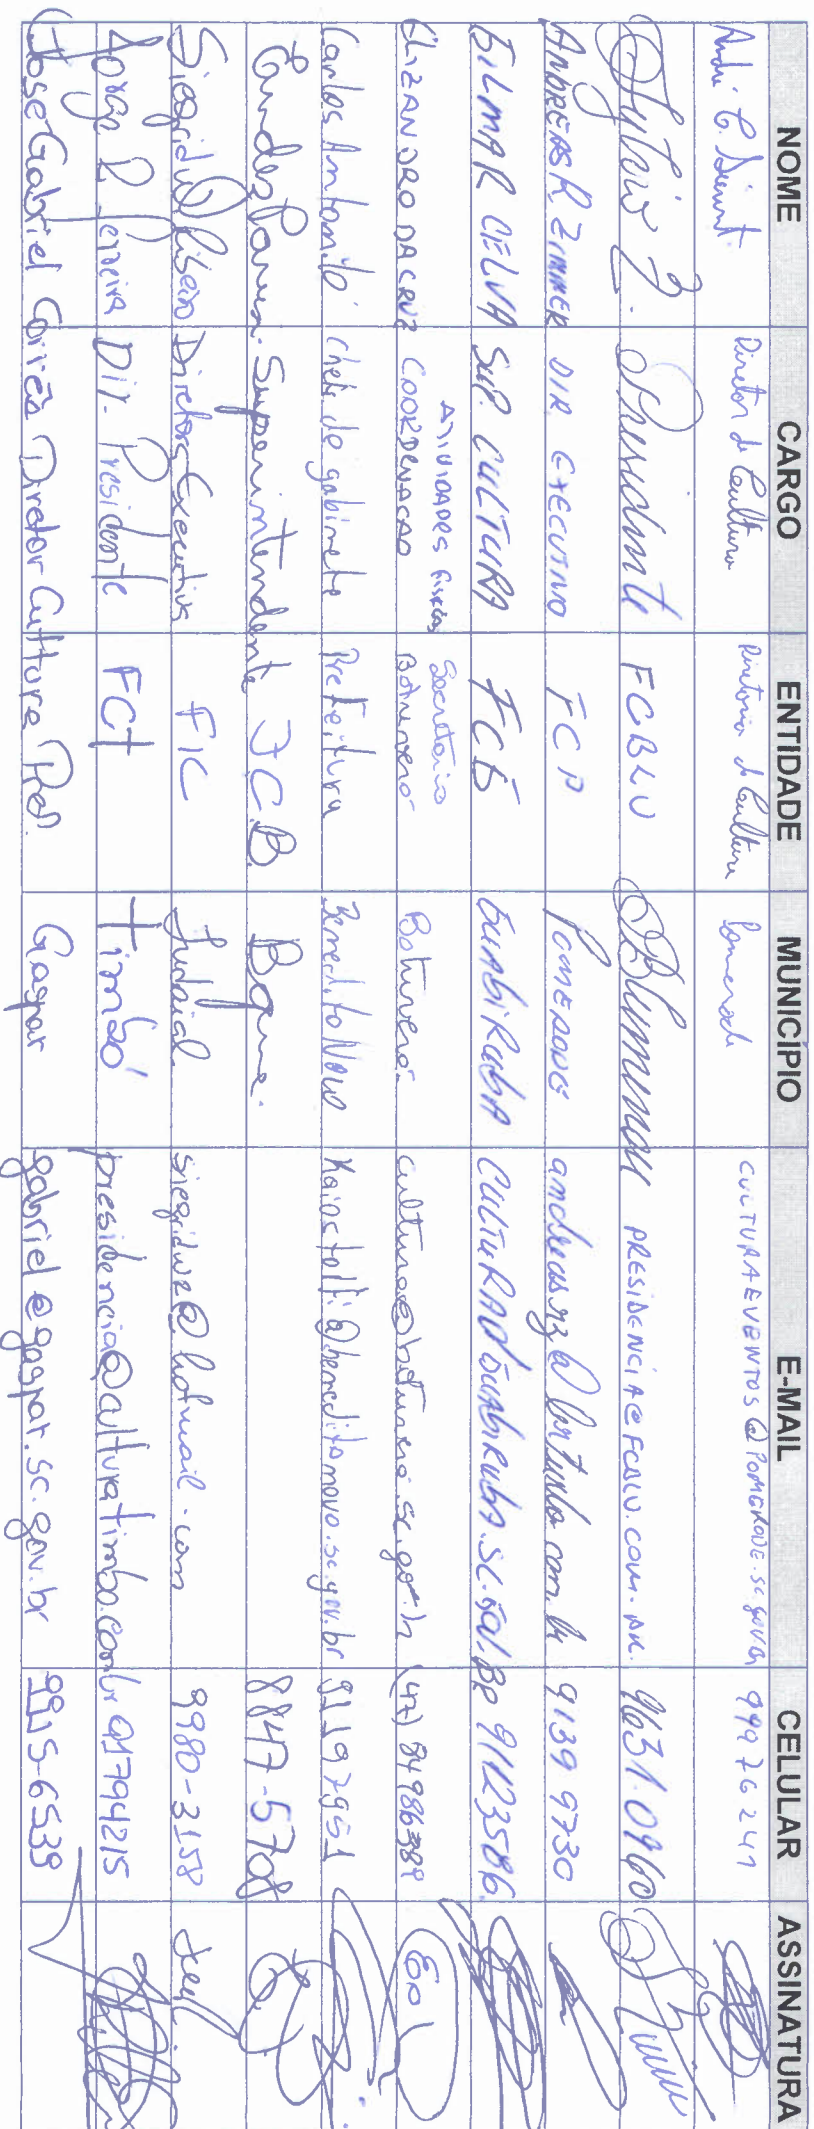 NOME CARGO ENTIDADE MUNICÍPIO E-MAIL CELULAR ASSINATURA
André C. Diretor de Cultura Diretoria de Cultura Pomerode CULTURAEVENTOS@POMERODE.SC.GOV.BR 99976241
Sylvio Z. Presidente FCBLU Blumenau PRESIDENCIA@FCBLU.COM.BR 9631.0960
ANDREAS R ZIMMER DIR EXECUTIVO FCP POMERODE 9139 9730
GILMAR CELVA SUP. CULTURA FCG GUABIRUBA CULTURA@GUABIRUBA.SC.GOV.BR 91123586
ELIZANDRO DA CRUZ COORDENACAO ATIVIDADES Secretaria Botuverá Botuverá cultura@botuvera.sc.gov.br (47) 84986389
Carlos Antonio Chefe de gabinete Prefeitura Benedito Novo @beneditonovo.sc.gov.br 91197951
Eurides Superintendente FCB Bque. 8847-5708
Siegrid Ribeiro Diretora Executiva FIC Indaial 9980-3158
Jorge R Ferreira Dir. Presidente FCT Timbó presidencia@culturatimbo.com.br 91794215
José Gabriel Corrêa Diretor Cultura Pref. Gaspar gabriel@gaspar.sc.gov.br 9915-6539